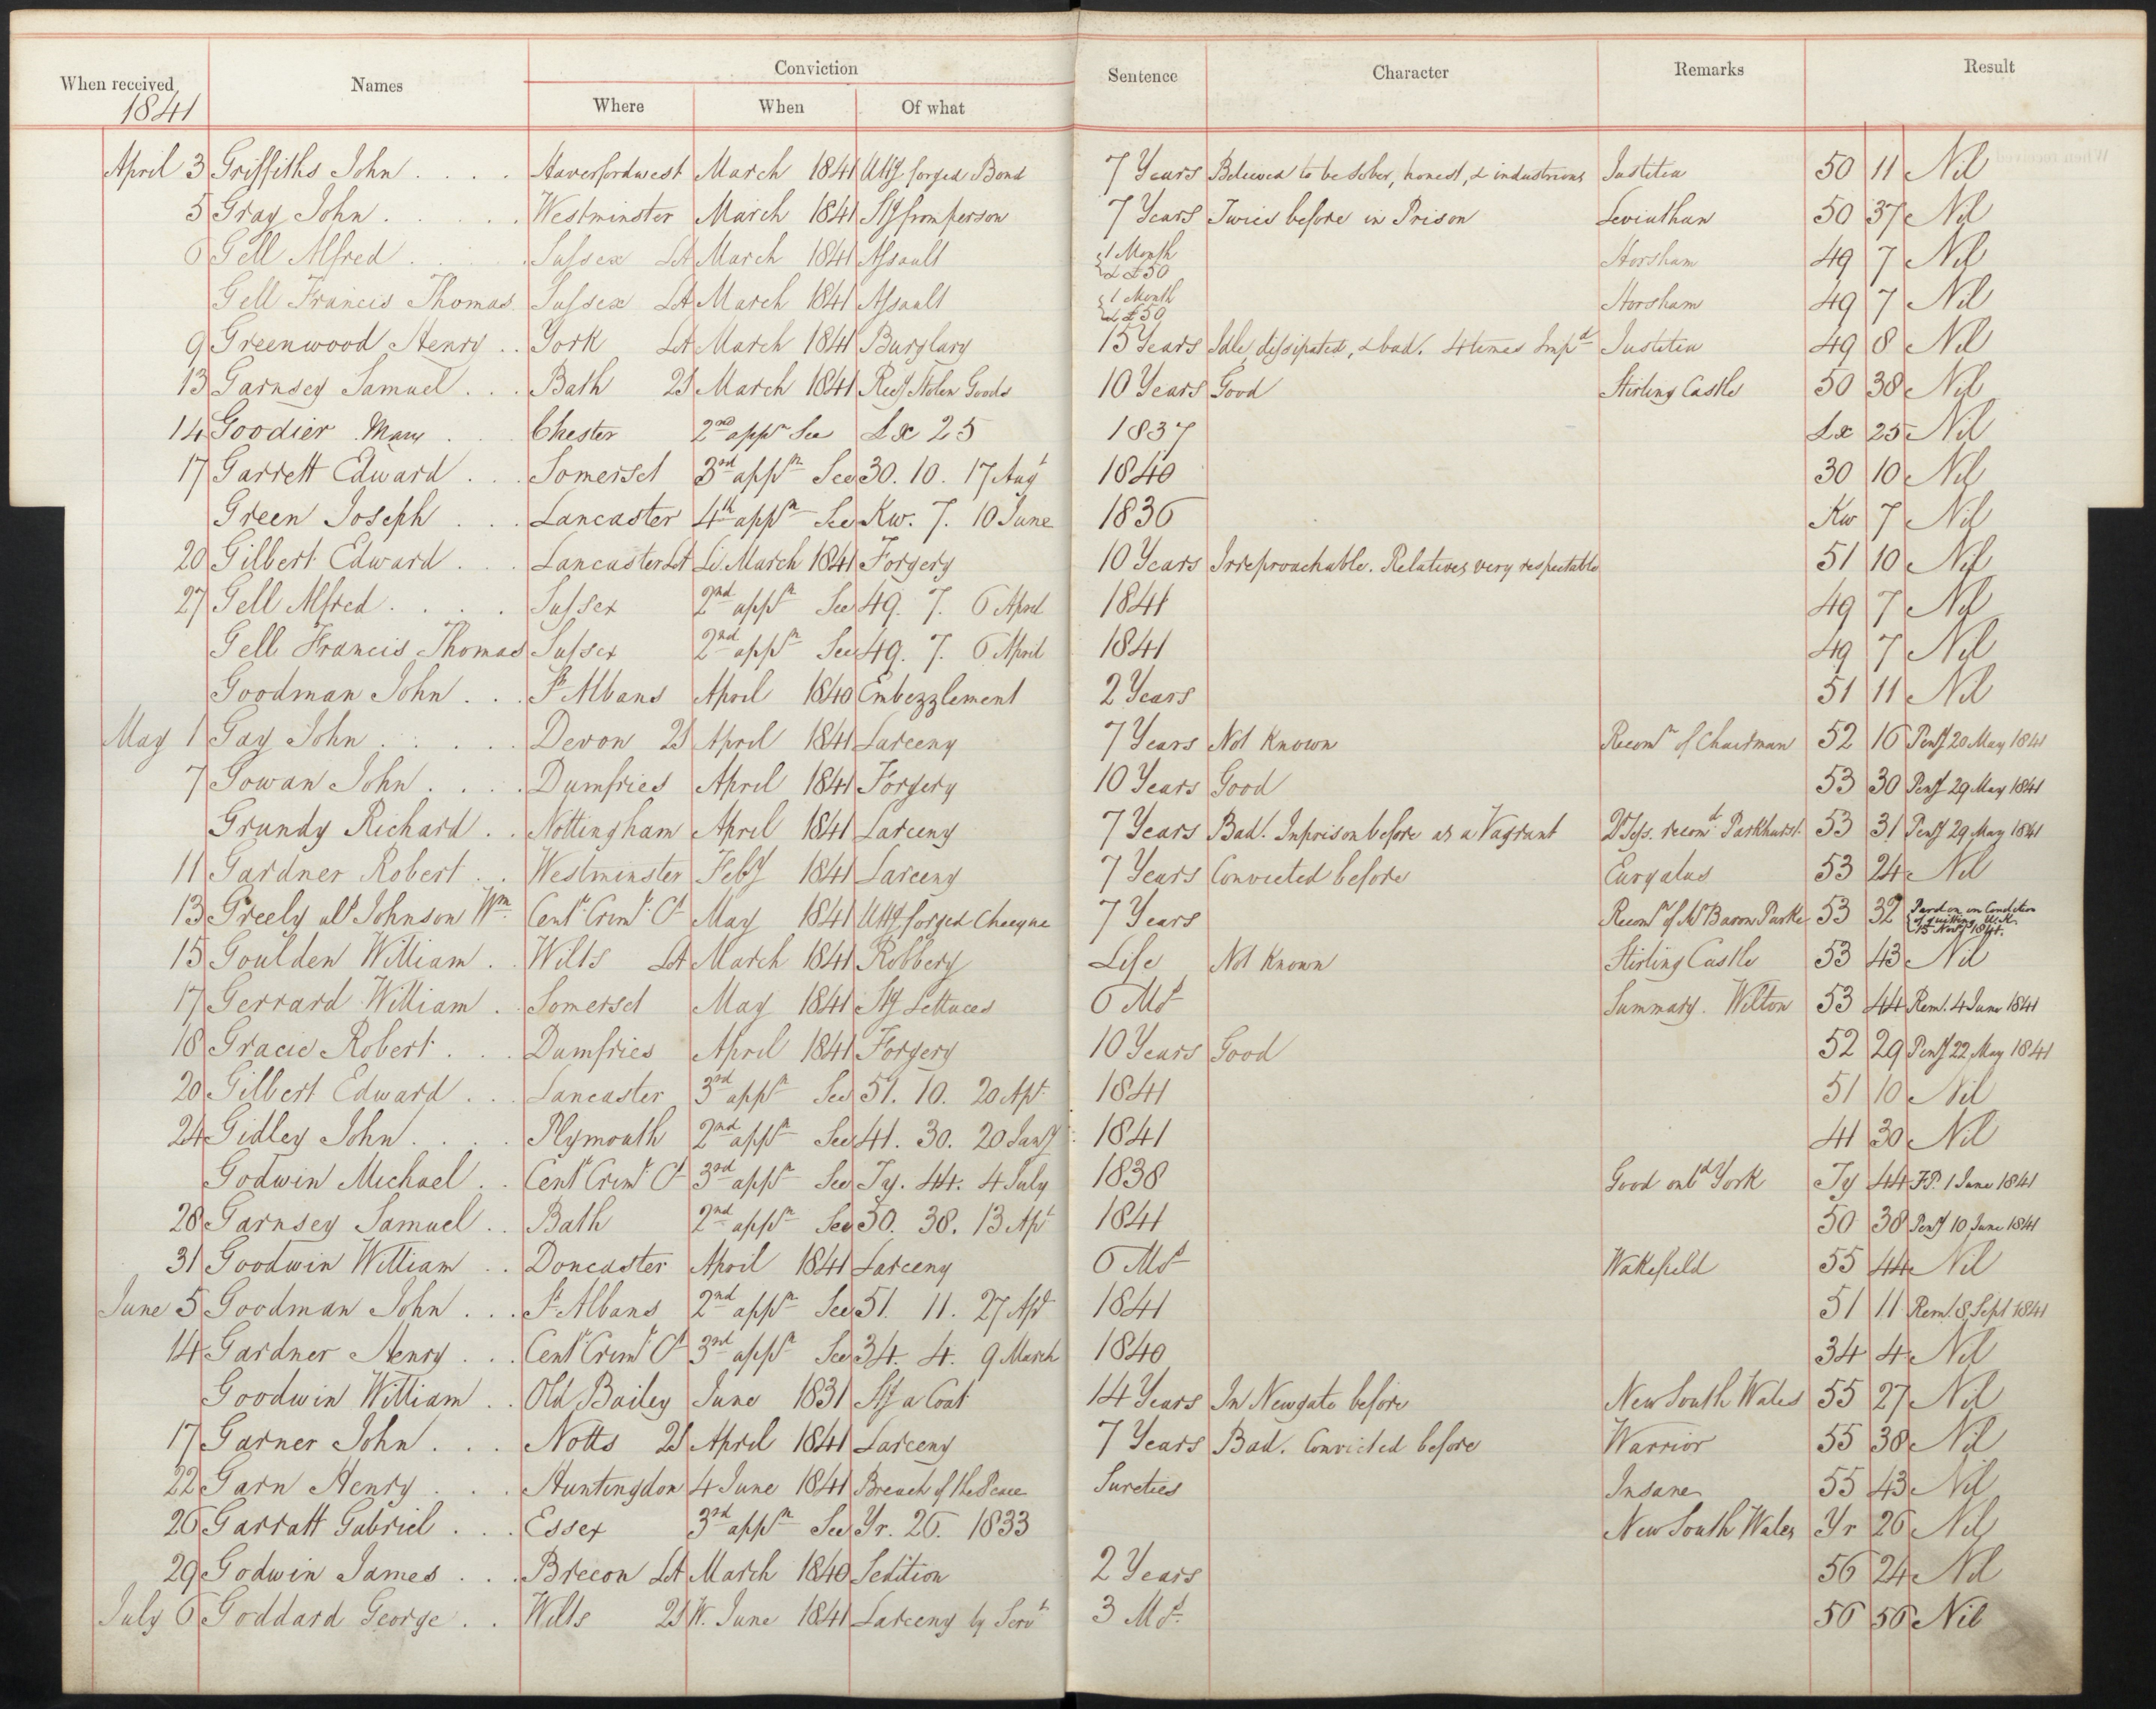 When received Names Conviction Sentence Character Remarks Result
1841 Where When Of what
April 3 Griffiths John . . . . Haverfordwest March 1841 Uttg forged Bond 7 Years Believed to be sober, honest, & industrious Justitia 50 11 Nil
5 Gray John . . . . . Westminster March 1841 Stg from person 7 Years Twice before in Prison Leviathan 50 37 Nil
6 Gell Alfred . . . . Sussex Lt March 1841 Assault 1 Month & £50 Horsham 49 7 Nil
Gell Francis Thomas Sussex Lt March 1841 Assault 1 Month & £50 Horsham 49 7 Nil
9 Greenwood Henry . . York Lt March 1841 Burglary 15 Years Idle, dissipated, & bad. 4 times Impd Justitia 49 8 Nil
13 Garnsey Samuel . . . Bath 2S March 1841 Recg Stolen Goods 10 Years Good Stirling Castle 50 38 Nil
14 Goodier Mary . . . Chester 2nd appn See Lx 25 1837 Lx 25 Nil
17 Garrett Edward . . . Somerset 3rd appn See 30. 10. 17 Augt 1840 30 10 Nil
Green Joseph . . . Lancaster 4th appn See Kw. 7. 10 June 1836 Kw 7 Nil
20 Gilbert Edward . . . Lancaster Lt Li. March 1841 Forgery 10 Years Irreproachable. Relatives very respectable 51 10 Nil
27 Gell Alfred . . . . Sussex 2nd appn See 49. 7. 6 April 1841 49 7 Nil
Gell Francis Thomas Sussex 2nd appn See 49. 7. 6 April 1841 49 7 Nil
Goodman John . . . St Albans April 1840 Embezzlement 2 Years 51 11 Nil
May 1 Gay John . . . . . Devon 2S April 1841 Larceny 7 Years Not Known Recomn of Chairman 52 16 Peny 20 May 1841
7 Gowan John . . . . Dumfries April 1841 Forgery 10 Years Good 53 30 Peny 29 May 1841
Grundy Richard . . Nottingham April 1841 Larceny 7 Years Bad. In prison before as a Vagrant recomd Parkhurst 53 31 Peny 29 May 1841
11 Gardner Robert . . Westminster Feby 1841 Larceny 7 Years Convicted before Euryalus 53 24 Nil
13 Greely als Johnson Wm Cent Criml Ct May 1841 Uttg forged Cheque 7 Years Recomn of Mr Baron Parke 53 32 Pardon on Condition of quitting U.K. 15 Novr 1841.
15 Goulden William . Wilts Lt March 1841 Robbery Life Not Known Stirling Castle 53 43 Nil
17 Gerrard William . Somerset May 1841 Stg Lettuces 6 Mos Summary. Wilton 53 44 Rem. 4 June 1841
18 Gracie Robert . . . Dumfries April 1841 Forgery 10 Years Good 52 29 Peny 22 May 1841
20 Gilbert Edward . . . Lancaster 3rd appn See 51. 10. 20 Apl 1841 51 10 Nil
24 Gidley John . . . . Plymouth 2nd appn See 41. 30. 20 Jany 1841 41 30 Nil
Godwin Michael . . Cent Criml Ct 3rd appn See Jy. 44. 4 July 1838 Good onbd York Jy 44 F.P. 1 June 1841
28 Garnsey Samuel . . Bath 2nd appn See 50. 38. 13 Apl 1841 50 38 Peny 10 June 1841
31 Goodwin William . . Doncaster April 1841 Larceny 6 Mos Wakefield 55 44 Nil
June 5 Goodman John . . . St Albans 2nd appn See 51. 11. 27 Apl 1841 51 11 Rem. 8 Sept 1841
14 Gardner Henry . . . Cent Criml Ct 3rd appn See 34. 4. 9 March 1840 34 4 Nil
Goodwin William . . Old Bailey June 1831 Stg a Coat 14 Years In Newgate before New South Wales 55 27 Nil
17 Garner John . . . Notts 2S April 1841 Larceny 7 Years Bad. Convicted before Warrior 55 38 Nil
22 Garn Henry . . . Huntingdon 4 June 1841 Breach of the Peace Sureties Insane 55 43 Nil
26 Garratt Gabriel . . . Essex 3rd appn See Yr. 26. 1833 New South Wales Yr 26 Nil
29 Godwin James . . . Brecon Lt March 1840 Sedition 2 Years 56 24 Nil
July 6 Goddard George . . Wilts 2S W. June 1841 Larceny by Servt 3 Mos 56 56 Nil